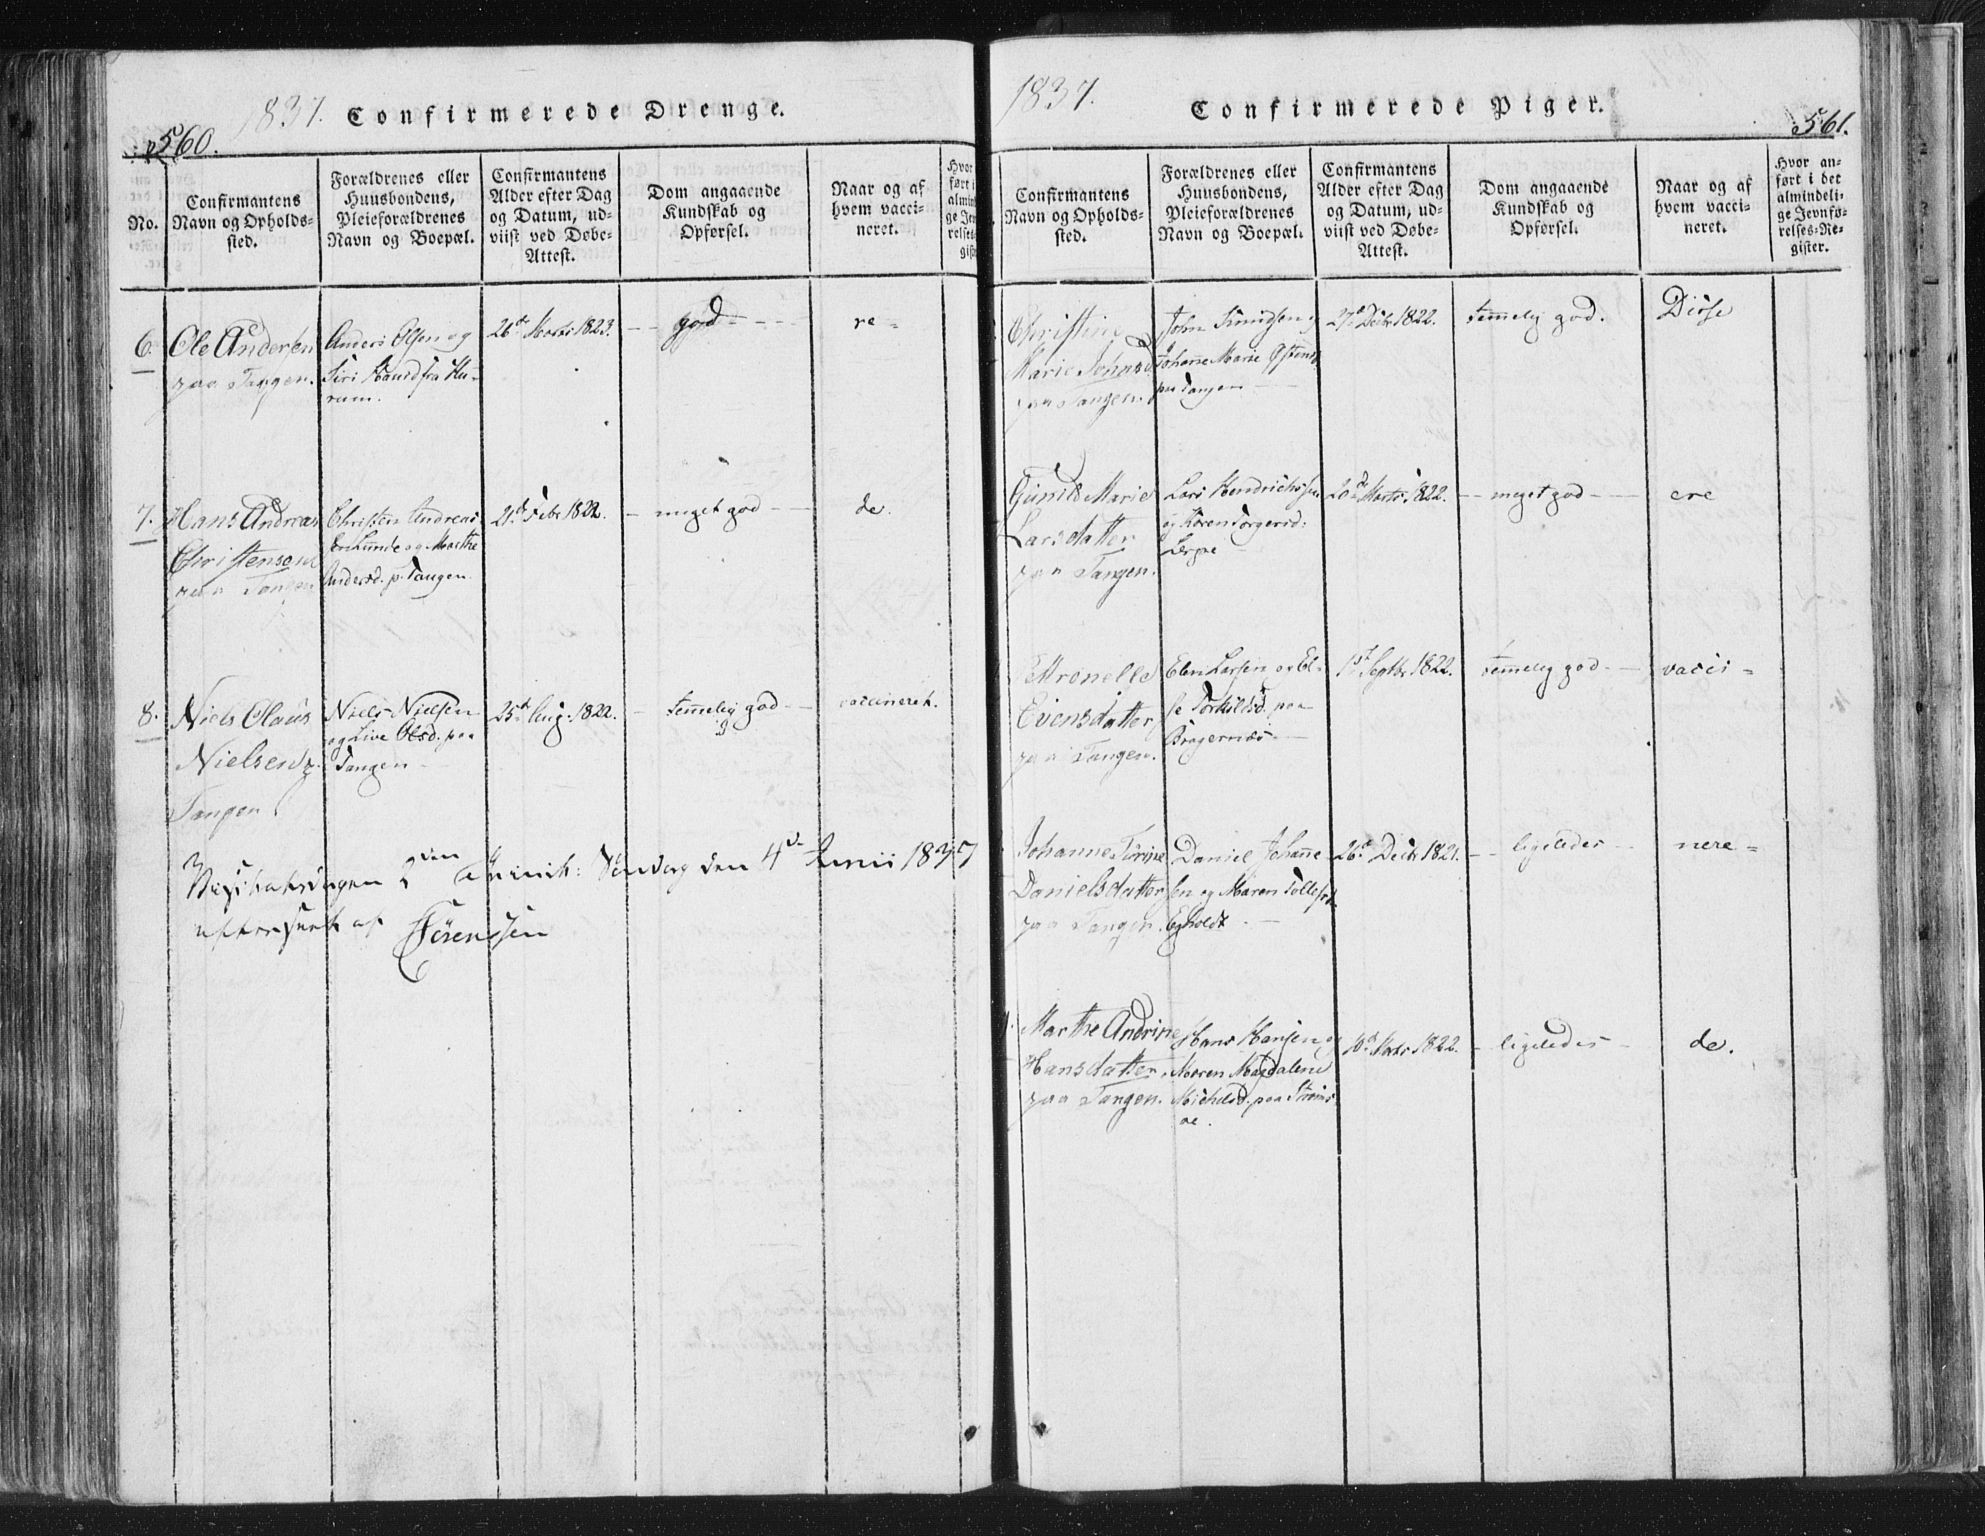 560.
1837. Confirmerede Drenge.
No.
Confirmantens
Navn og Opholds-
sted.
Forældrenes eller
Huusbondens,
Pleieforældrenes
Navn og Boepæl.
Confirmantens
Alder efter Dag
og Datum, ud-
viist ved Døbe-
Attest.
Dom angaaende
Kundskab og
Opførsel.
Naar og af
hvem vacci-
neret.
6.
Ole Andersen
paa Tangen.
Anders Olsen og
Siri fra Hu-
rum.
26de Marts 1823.
god
re-
7.
Hans Andreas
Christensen
paa Tangen
Christen Andreas-
og Marthe
Andersd. p. Tangen
21de Febr 1822.
meget god
de.
8.
Niels Olaus
Nielsen p.
Tangen
Niels Nielsen
og Live Olsd. paa
Tangen
25de Aug. 1822.
temmelig god
vaccineret.
den 4de Junii 1837
af Sörenssen
1837. Confirmerede Piger.
561.
Confirmantens
Navn og Opholds-
sted.
Forældrenes eller
Huusbondens,
Pleieforældrenes
Navn og Boepæl.
Confirmantens
Alder efter Dag
og Datum, ud-
viist ved Døbe-
Attest.
Dom angaaende
Kundskab og
Opførsel.
Naar og af
hvem vacci-
neret.
Hvor an-
ført i det
almindeli-
ge Jevnfø-
relses-Re-
gister.
Christine
Marie
paa Tangen.
John Simensen og
Johanne Marie
paa Tangen
27de Decbr 1822.
temmelig god.
Disse
Gunild Marie
Larsdatter
paa Tangen.
Lars Hendrichssen
og Karen Torgersd.
20de Marts 1822.
meget god
ere
Evensdatter
paa Tangen.
Even Larsen og El-
se Torkildsd. paa
Bragernæs
1ste Septbr 1822.
temmelig god
vacci-
Johanne
Danielsdatter
paa Tangen.
Daniel Johanne-
sen og Maren
Egholdt
26de Decbr 1821.
ligeledes
nere-
Marthe Andrine
Hansdatter
paa Tangen.
Hans Hansen og
Maren Magdalene
Michelsd. paa Strøms-
øe.
10de Marts 1822.
ligeledes
de.